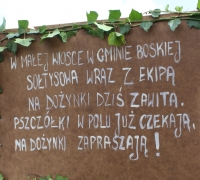 W MAŁEJ WIOSCE W GMINIE BOSKIEJ
SOŁTYSOWA WRAZ Z EKIPĄ
NA DOŻYNKI DZIŚ ZAWITA.
PSZCZÓŁKI W POLU JUŻ CZEKAJĄ,
NA DOŻYNKI ZAPRASZAJĄ!